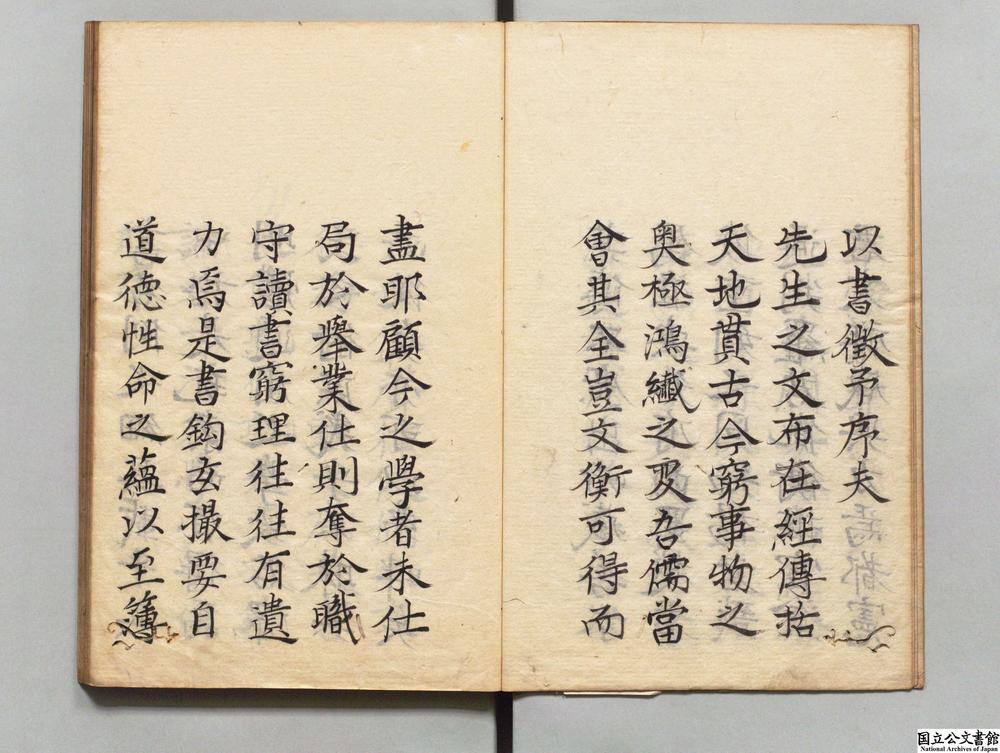 以書徵予序夫
先生之文布在經傳括
天地貫古今窮事物之
奥極鴻纎之变吾儒當
會其全豈文衡可得而
盡耶顧今之學者未仕
局於舉業仕則奪於職
守讀書窮理往往有遺
力焉是書鈎玄撮要自
道德性命之蘊以至簿
国立公文書館
National Archives of Japan